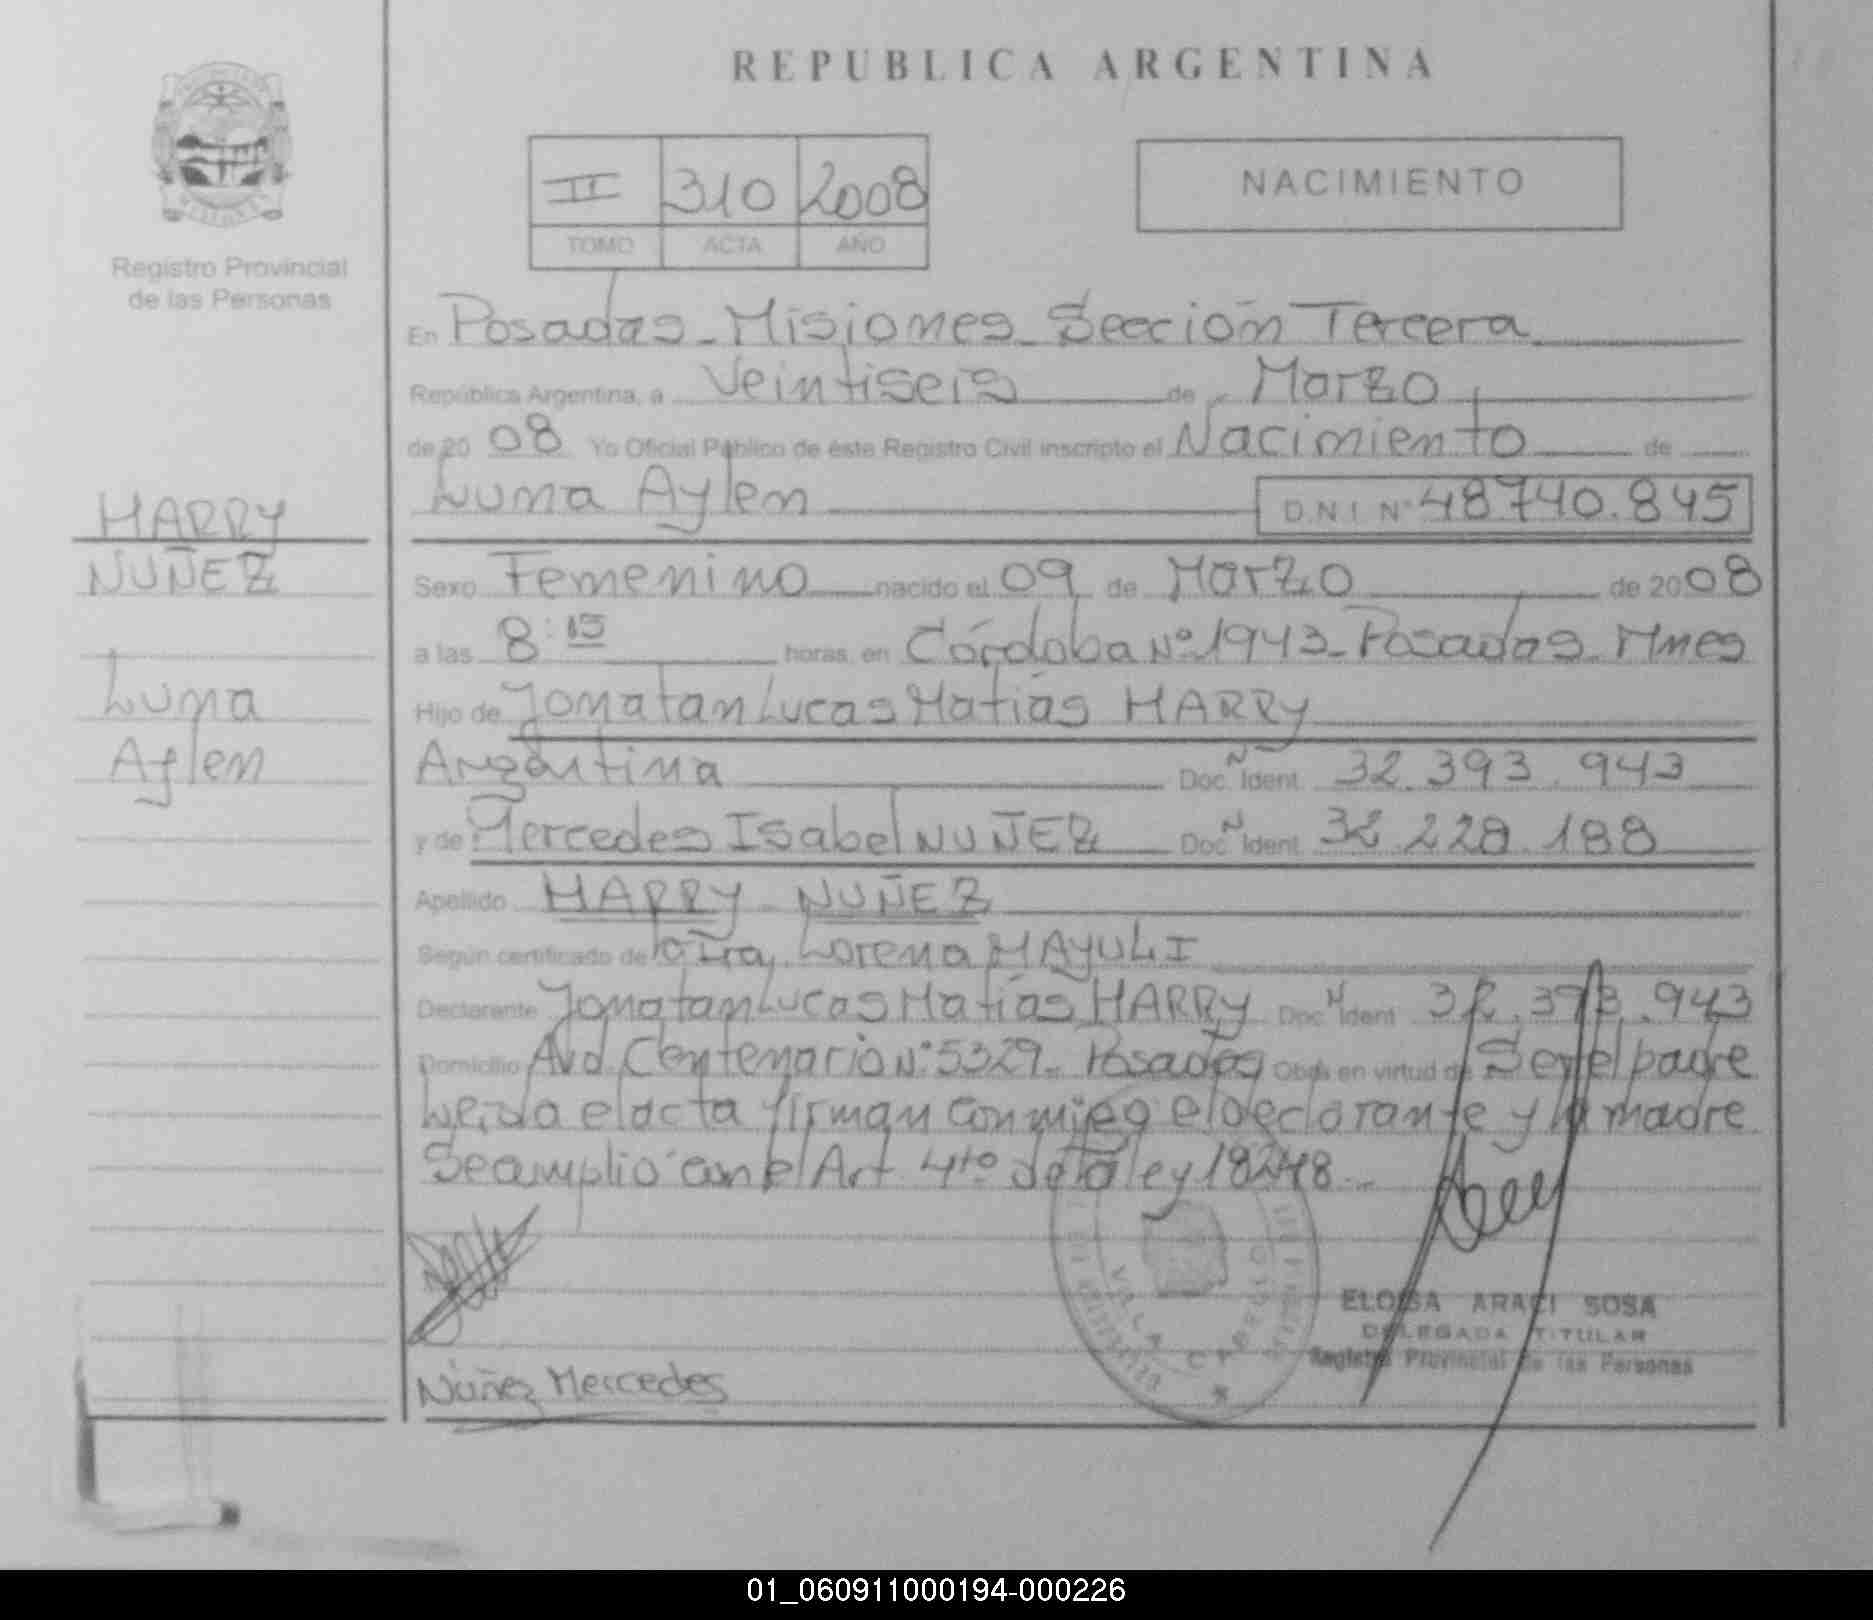 REPUBLICA ARGENTINA
II 310 2008
TOMO ACTA AÑO
NACIMIENTO
Registro Provincial
de las Personas
HARRY
NUÑEZ
Luna
Aylen
En Posadas - Misiones - Sección Tercera
República Argentina, a Veintiseis de Marzo
de 2008 Yo Oficial Público de éste Registro Civil inscripto el Nacimiento de
Luna Aylen D.N.I. Nº 48740.845
Sexo Femenino nacido el 09 de Marzo de 2008
a las 8:15 horas, en Córdoba Nº 1943 - Posadas - Mnes
Hijo de Jonatan Lucas Matías HARRY
Argentina Doc. N Ident. 32.393.943
y de Mercedes Isabel NUÑEZ Doc. N Ident. 32.228.188
Apellido HARRY - NUÑEZ
Según certificado de la Lorena MAYULI
Declarante Jonatan Lucas Matías HARRY Doc. N Ident 32.393.943
Domicilio Avd. Centenario Nº 5329 - Posadas Obra en virtud de Ser el padre
Leída el acta firman conmigo el declarante y la madre
Se cumplio con el Art. 4to de la ley 18248
VILLA CABELLO
ELOISA ARACI SOSA
DELEGADA TITULAR
Registro Provincial de las Personas
Nuñez Mercedes
01_060911000194-000226